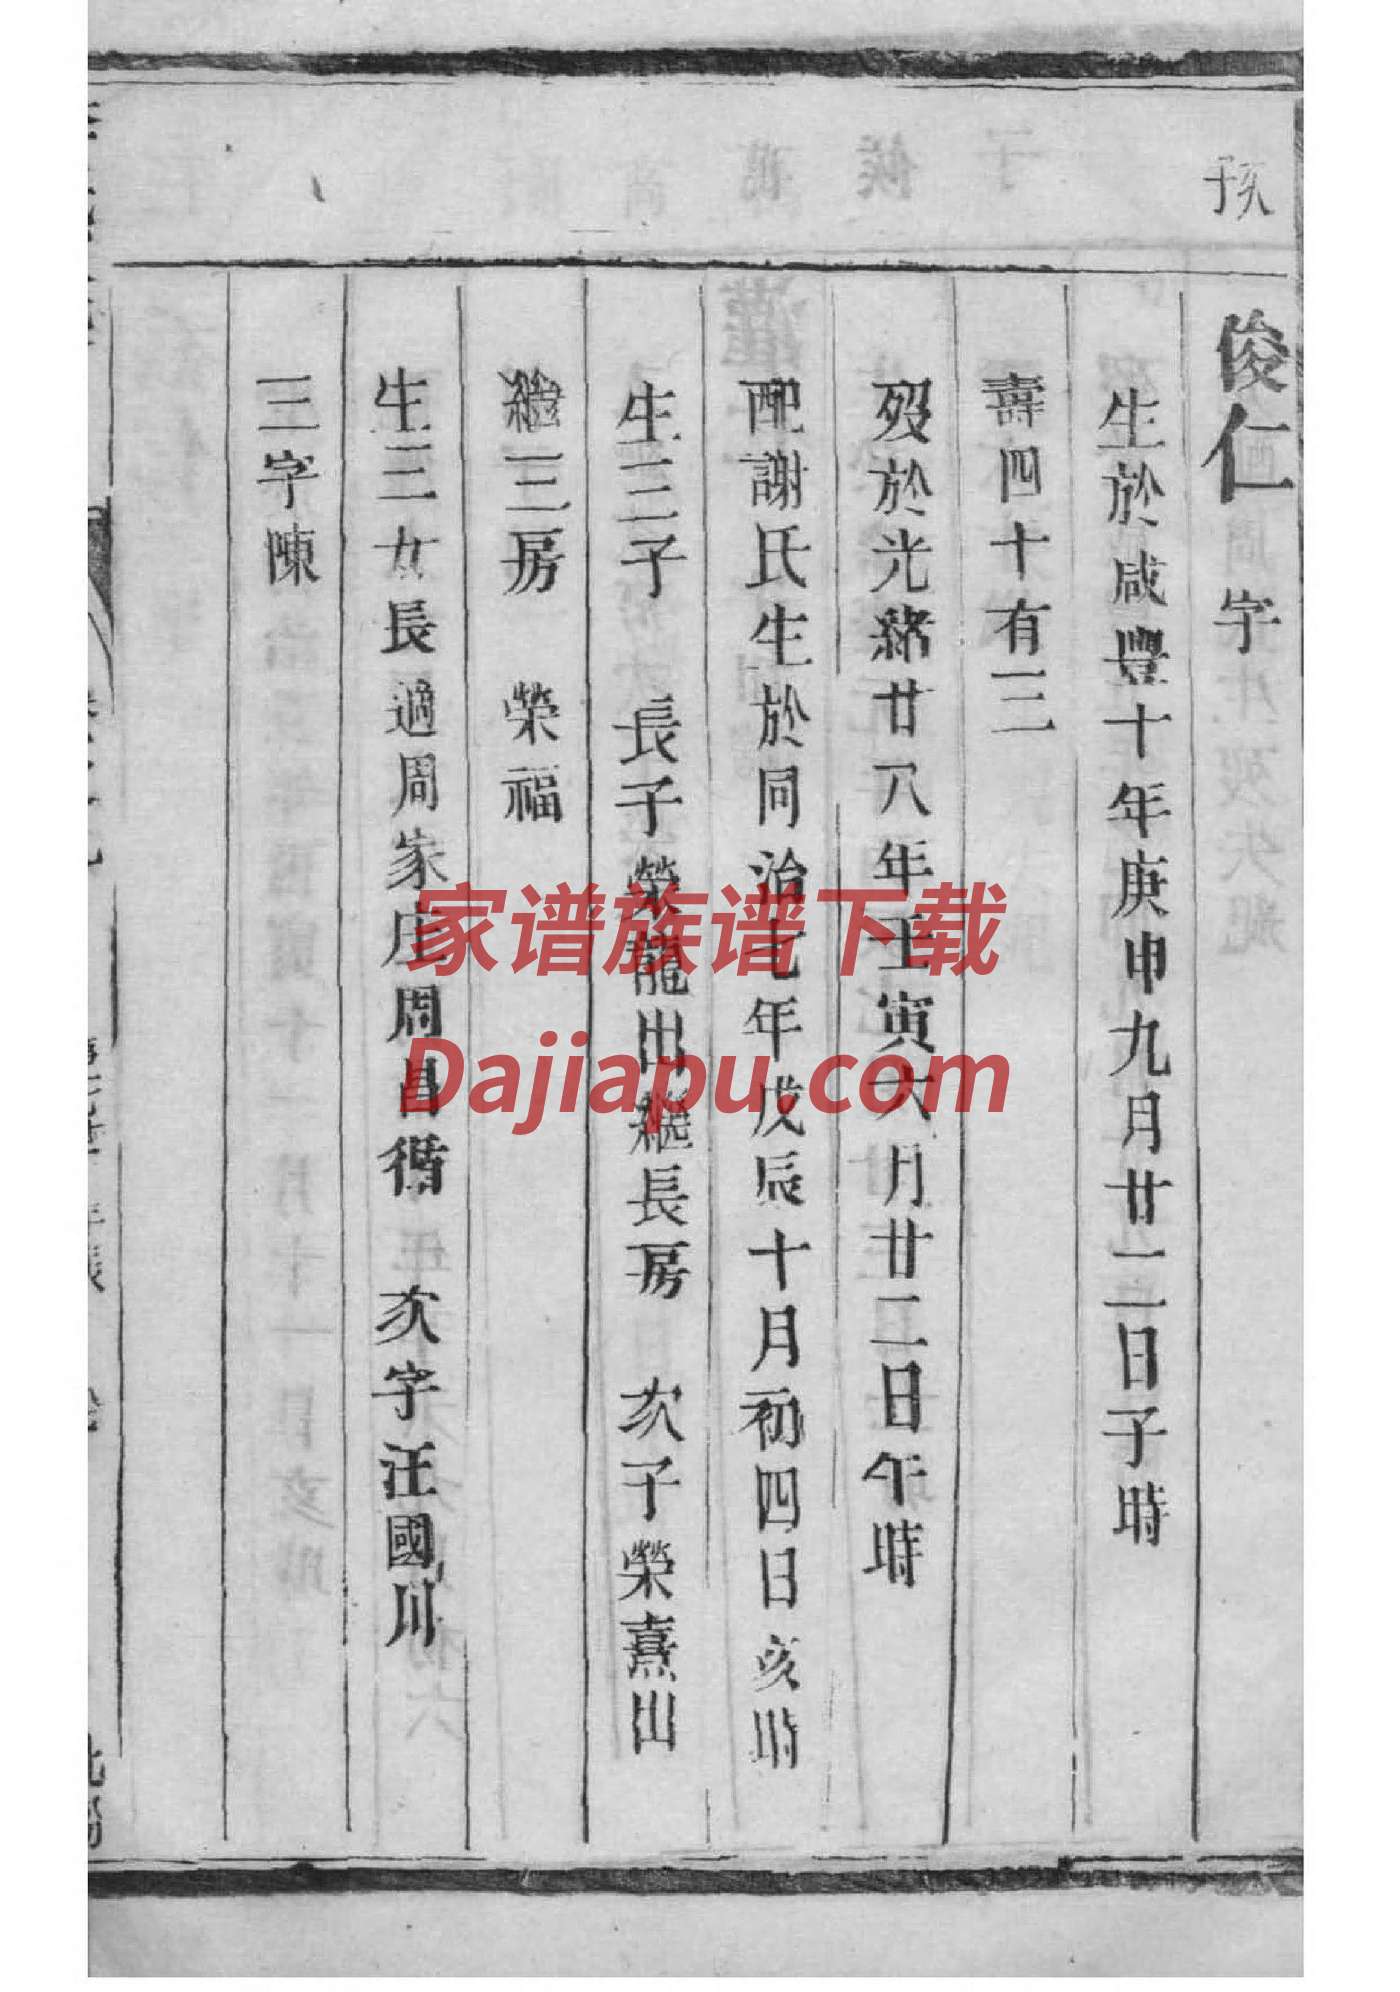 孩
俊仁　字
生於咸豐十年庚申九月廿二日子時
壽四十有三
歿於光緒廿八年壬寅六月廿二日午時
配謝氏生於同治七年戊辰十月初四日亥時
生三子　長子榮龍出繼長房　次子榮熹出
繼三房　榮福
生三女長適周家庄周昌循　次字汪國川
三字陳
家谱族谱下载
Dajiapu.com